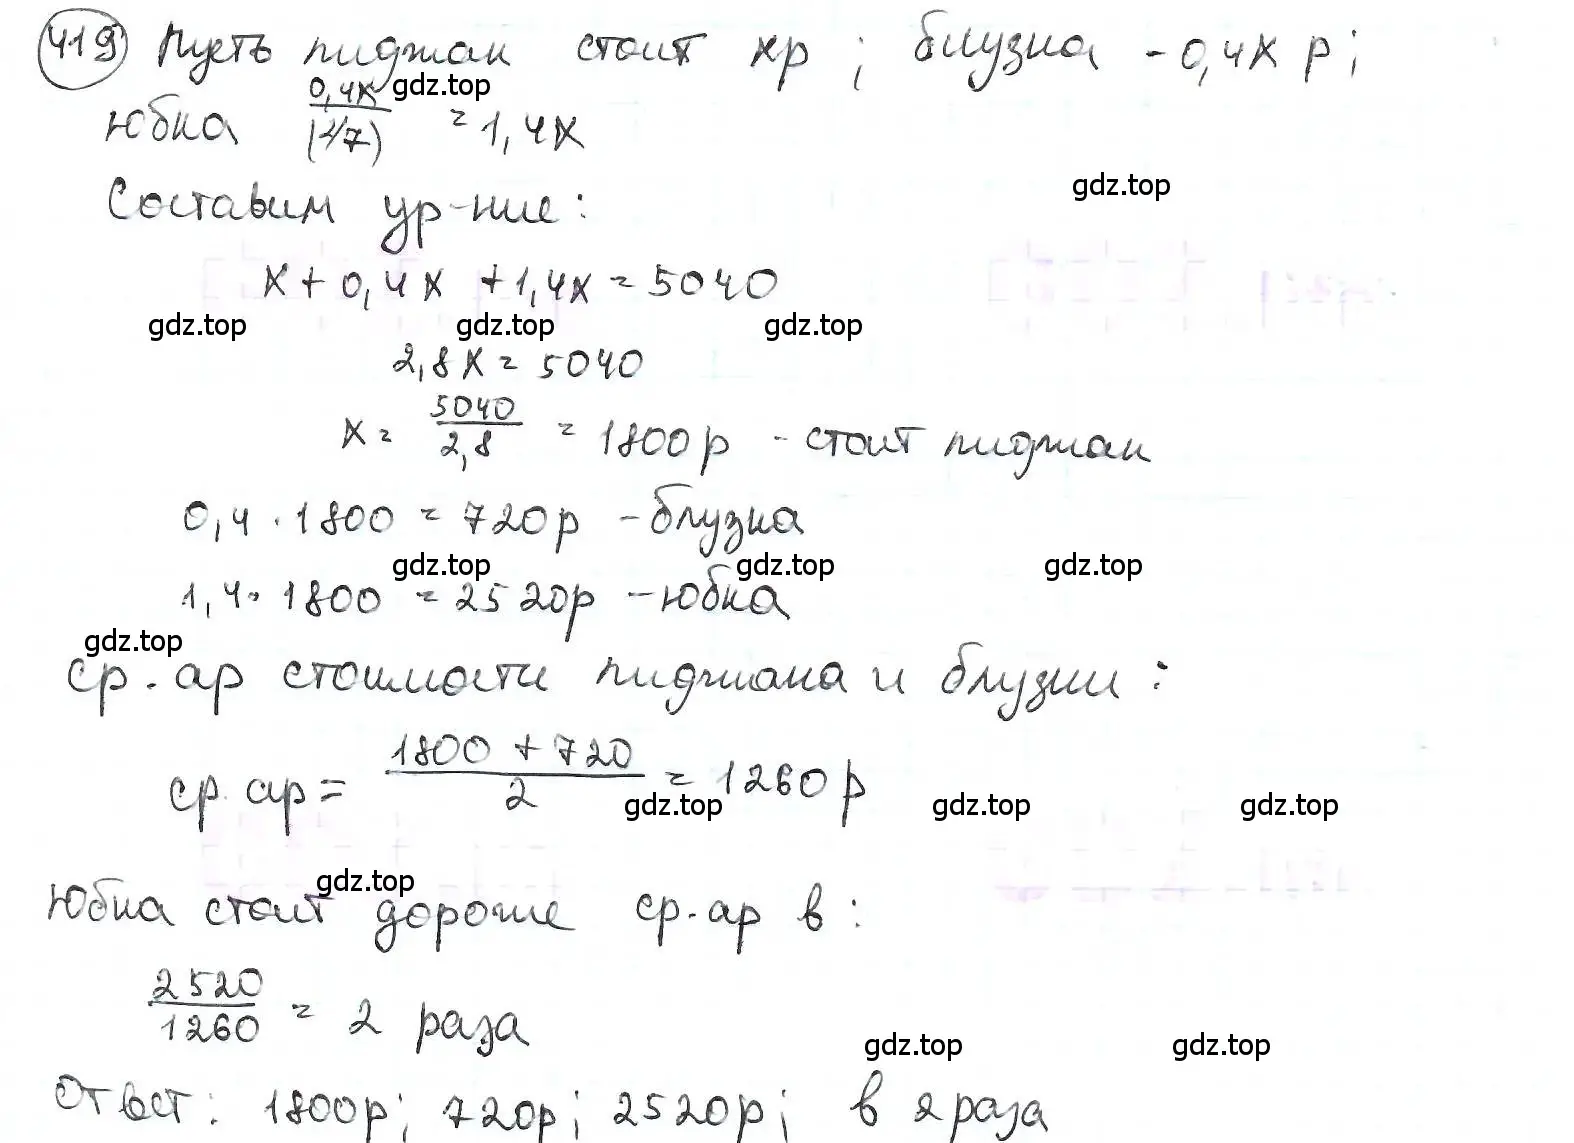 419 Пусть пиджак стоит xр; блузка - 0,4x р;
юбка 0,4x/(2/7) = 1,4x
gdz.top
Составим ур-ние:
gdz.top
x + 0,4x + 1,4x = 5040
gdz.top gdz.top gdz.top
2,8x = 5040
x = 5040/2,8 = 1800р - стоит пиджак
0,4 · 1800 = 720р - блузка
gdz.top gdz.top gdz.top
1,4 · 1800 = 2520р - юбка
gdz.top
ср. ар стоимости пиджака и блузки:
ср. ар = (1800 + 720)/2 = 1260р
gdz.top gdz.top gdz.top
gdz.top
Юбка стоит дороже ср. ар в:
2520/1260 = 2 раза
gdz.top gdz.top
Ответ: 1800р; 720р; 2520р; в 2 раза